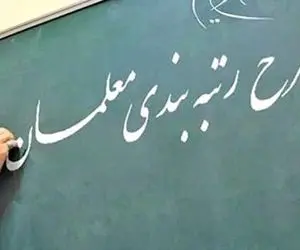 رح رتبه بندی معلمان